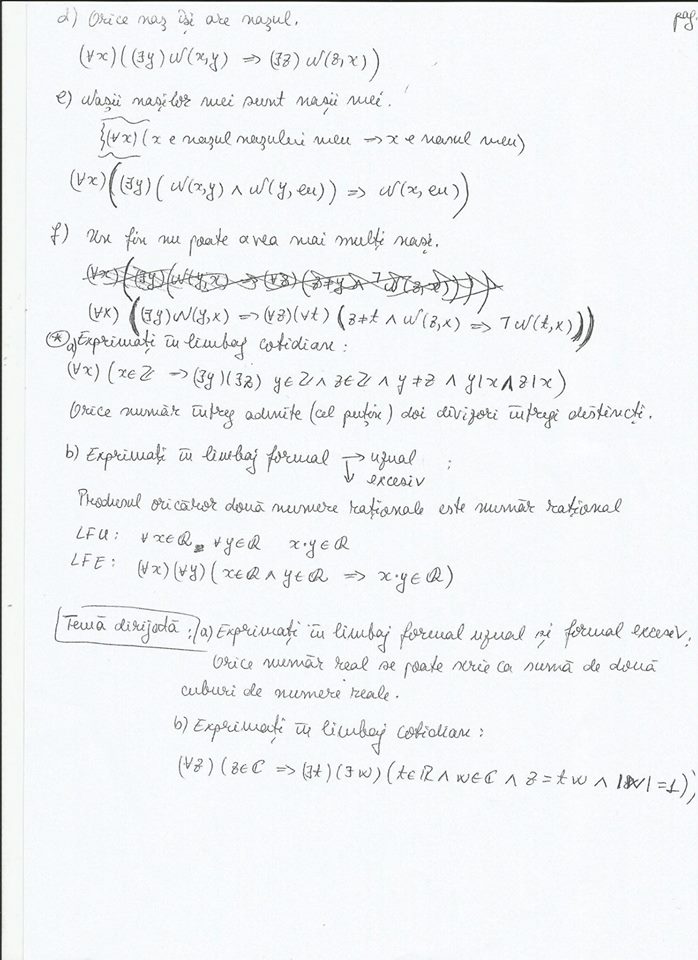 pag.
d) Orice naș își are nașul.
(∀x)((∃y) N(x,y) ⇒ (∃z) N(z,x))
e) Nașii nașilor mei sunt nașii mei.
{(∀x)(x e nașul nașului meu ⇒ x e nasul meu)
(∀x)((∃y)(N(x,y) ∧ N(y,eu)) ⇒ N(x,eu))
f) Un fin nu poate avea mai mulți nași.
(∀x)((∃y)N(y,x) ⇒ (∀z)(∀t)(z≠t ∧ N(z,x) ⇒ ¬N(t,x)))
(*) a) Exprimați în limbaj cotidian:
(∀x)(x∈ℤ ⇒ (∃y)(∃z) y∈ℤ ∧ z∈ℤ ∧ y≠z ∧ y|x ∧ z|x)
Orice număr întreg admite (cel puțin) doi divizori întregi distincți.
b) Exprimați în limbaj formal → uzual ;
↓ excesiv
Produsul oricăror două numere raționale este număr rațional
LFU: ∀x∈ℚ, ∀y∈ℚ x·y∈ℚ
LFE: (∀x)(∀y)(x∈ℚ ∧ y∈ℚ ⇒ x·y∈ℚ)
Temă dirijată: a) Exprimați în limbaj formal uzual și formal excesiv:
Orice număr real se poate scrie ca sumă de două
cuburi de numere reale.
b) Exprimați în limbaj cotidian:
(∀z)(z∈ℂ ⇒ (∃t)(∃w)(t∈ℝ ∧ w∈ℂ ∧ z=tw ∧ |w|=1);